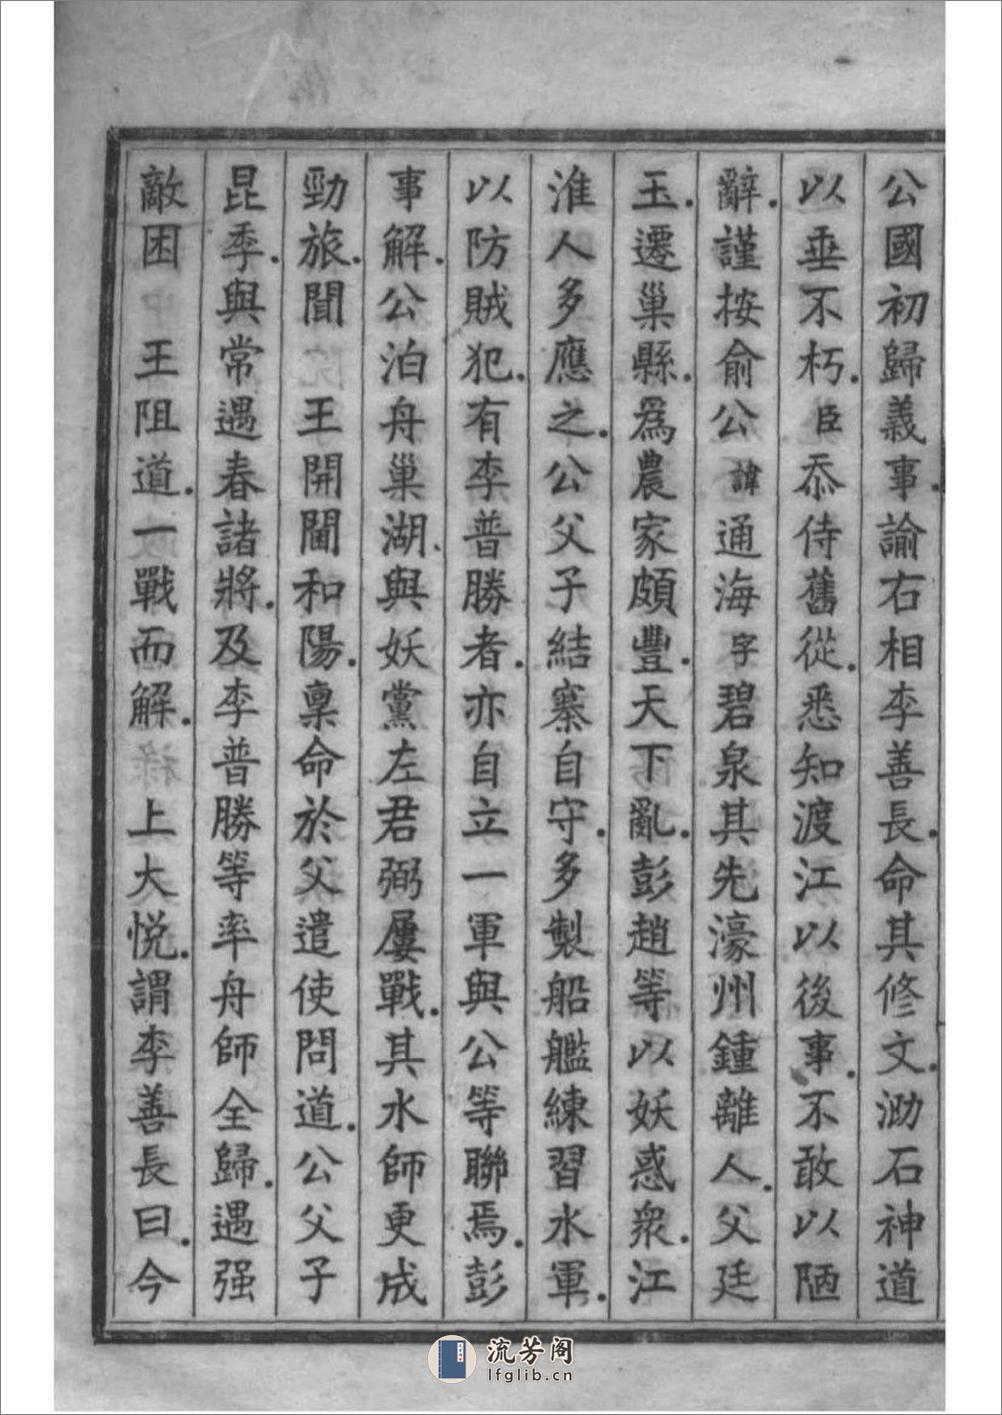 公國初歸義事諭右相李善長命其修文泐石神道
以垂不朽臣忝侍舊從悉知渡江以後事不敢以陋
辭謹按俞公諱通海字碧泉其先濠州鍾離人父廷
玉遷巢縣爲農家頗豐天下亂彭趙等以妖惑衆江
淮人多應之公父子結寨自守多製船艦練習水軍
以防賊犯有李普勝者亦自立一軍與公等聯焉彭
事解公泊舟巢湖與妖黨左君弼屢戰其水師更成
勁旅聞　王開閫和陽稟命於父遣使問道公父子
昆季與常遇春諸將及李普勝等率舟師全歸遇强
敵困　王阻道一戰而解　上大悅謂李善長曰今
流芳阁
lfglib.cn